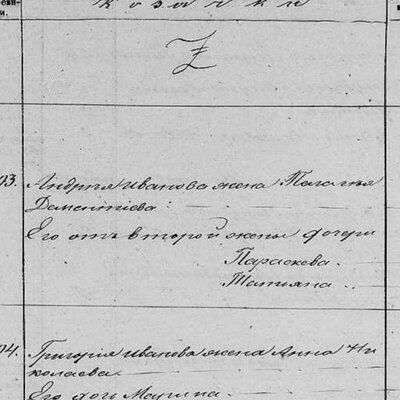 козачки
03. Андрея Иванова жена Пелагея
Дементiева.
Его отъ второй жены дочери
Параскева.
Татьяна.
04. Григорiя Иванова жена Анна Ни
колаева.
Его дочь Марина.